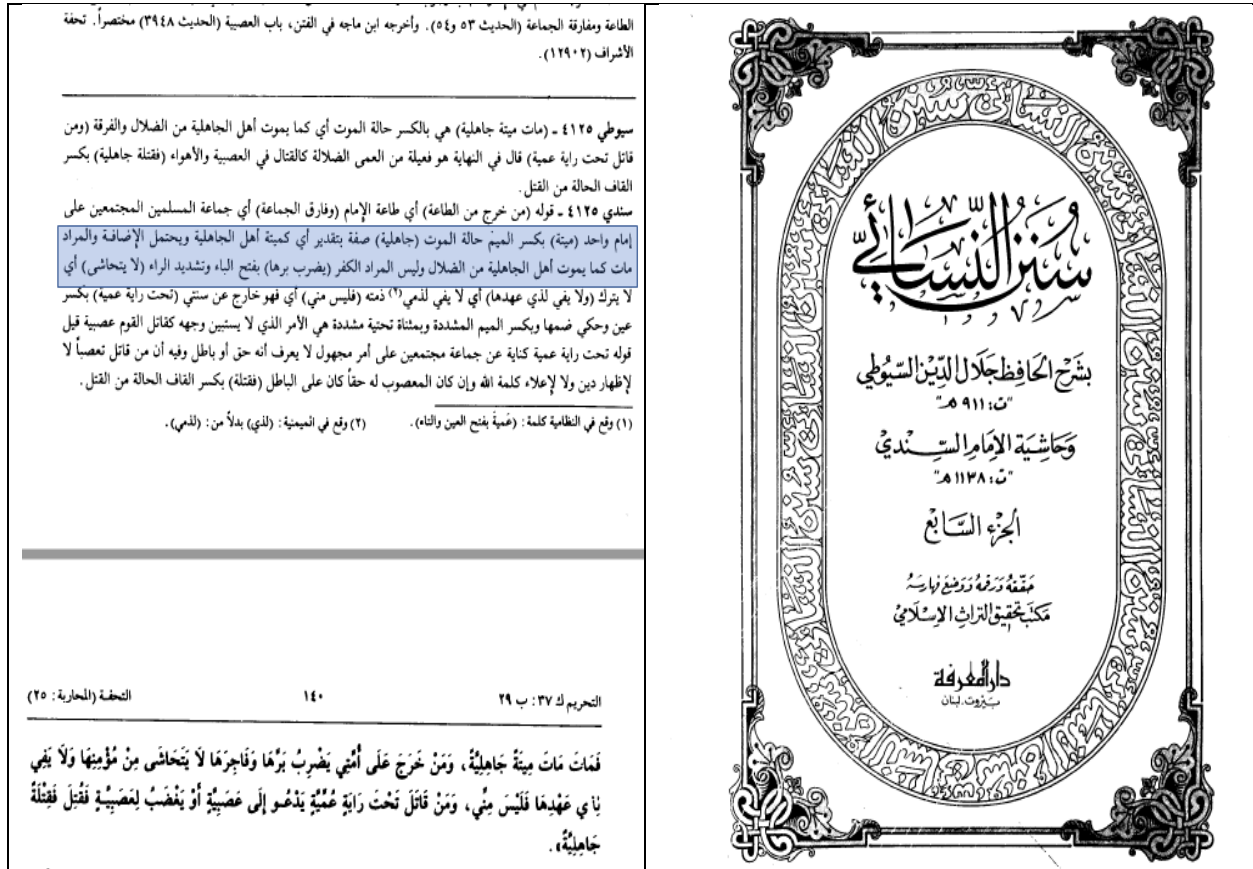 الطاعة ومفارقة الجماعة (الحديث ٥٣ و٥٤). وأخرجه ابن ماجه في الفتن، باب العصبية (الحديث ٣٩٤٨) مختصراً. تحفة
الأشراف (١٢٩٠٢).
سيوطي ٤١٢٥ ـ (مات ميتة جاهلية) هي بالكسر حالة الموت أي كما يموت أهل الجاهلية من الضلال والفرقة (ومن
قاتل تحت راية عمية) قال في النهاية هو فعيلة من العمى الضلالة كالقتال في العصبية والأهواء (فقتلة جاهلية) بكسر
القاف الحالة من القتل.
سندي ٤١٢٥ ـ قوله (من خرج من الطاعة) أي طاعة الإمام (وفارق الجماعة) أي جماعة المسلمين المجتمعين على
إمام واحد (ميتة) بكسر الميم حالة الموت (جاهلية) صفة بتقدير أي كميتة أهل الجاهلية ويحتمل الإضافة والمراد
مات كما يموت أهل الجاهلية من الضلال وليس المراد الكفر (يضرب برها) بفتح الباء وتشديد الراء (لا يتحاشى) أي
لا يترك (ولا يفي لذي عهدها) أي لا يفي لذمي(٢) ذمته (فليس مني) أي فهو خارج عن سنتي (تحت راية عمية) بكسر
عين وحكي ضمها وبكسر الميم المشددة وبمثناة تحتية مشددة هي الأمر الذي لا يستبين وجهه كقاتل القوم عصبية قيل
قوله تحت راية عمية كناية عن جماعة مجتمعين على أمر مجهول لا يعرف أنه حق أو باطل وفيه أن من قاتل تعصباً لا
لإظهار دين ولا لإعلاء كلمة الله وإن كان المعصوب له حقاً كان على الباطل (فقتلة) بكسر القاف الحالة من القتل.
(١) وقع في النظامية كلمة: (عَمية بفتح العين والتاء). (٢) وقع في الميمنية: (لذي) بدلاً من: (لذمي).
التحريم ك ٣٧: ب ٢٩ ١٤٠ التحفة (المحاربة: ٢٥)
فَمَاتَ مَاتَ مِيتَةً جَاهِلِيَّةً، وَمَنْ خَرَجَ عَلَى أُمَّتِي يَضْرِبُ بَرَّهَا وَفَاجِرَهَا لَا يَتَحَاشَى مِنْ مُؤْمِنِهَا وَلَا يَفِي
عَهْدِهَا فَلَيْسَ مِنِّي، وَمَنْ قَاتَلَ تَحْتَ رَايَةٍ عُمِّيَّةٍ يَدْعُو إِلَى عَصَبِيَّةٍ أَوْ يَغْضَبُ لِعَصَبِيَّةٍ فَقُتِلَ فَقِتْلَةٌ
جَاهِلِيَّةٌ».
سُنَنُ النَّسَائِيّ
بشَرْح الحَافِظ جَلَال الدِّيْن السّيُوطِي
"ت: ٩١١ هـ"
وَحَاشِيَة الإِمَام السِّنْدِيْ
"ت: ١١٣٨ هـ"
الجُزْءُ السَّابِع
حَقّقهُ وَرقمهُ وَوَضعَ فهَارسَهُ
مَكتَب تحقيق التراث الإسْلَامي
دار المعرفة
بَيْرُوت. لبْنان